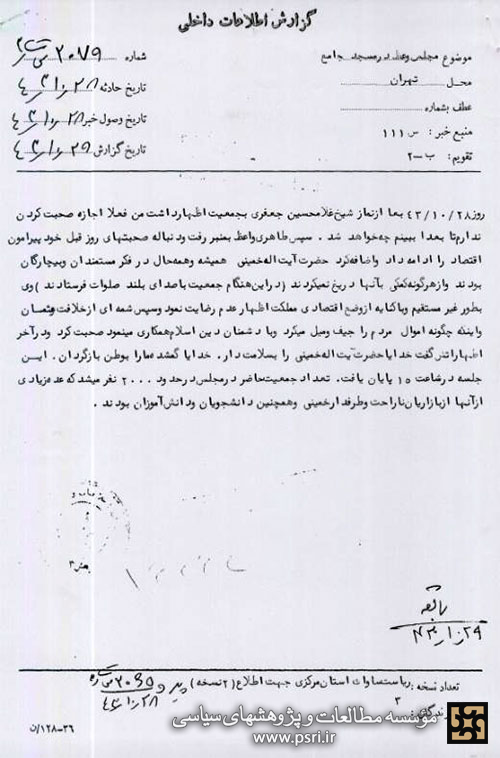 گزارش اطلاعات داخلی
موضوع مجلس وعظ در مسجد جامع
شماره ۲۰۷۹
محل : تهران
تاریخ حادثه ۲۸ / ۱۰ / ۴۳
عطف بشماره :
تاریخ وصول خبر ۲۸ / ۱۰ / ۴۳
منبع خبر : س ۱۱۱
تاریخ گزارش ۲۹ / ۱۰ / ۴۳
تقویم : ب - ۲
روز ۴۳/۱۰/۲۸ بعد از نماز شیخ غلامحسین جعفری بجمعیت اظهار داشت من فعلا اجازه صحبت کردن
ندارم تا بعدا ببینم چه خواهد شد . سپس طاهری واعظ بمنبر رفت ود نباله صحبتهای روز قبل خود پیرامون
اقتصاد را ادامه داد واضافه کرد حضرت آیت اله خمینی همیشه وهمه حال در فکر مستمندان وبیچارگان
بودند وازهرگونه کمکی بآنها دریغ نمیکردند (دراین هنگام جمعیت باصدای بلند صلوات فرستادند ) وی
بطور غیر مستقیم وباکنایه از وضع اقتصادی مملکت اظهار عدم رضایت نمود وسپس شمه ای از خلافت عثمان
واینکه چگونه اموال مردم را حیف ومیل میکرد وبا دشمنان دین اسلام همکاری مینمود صحبت کرد ودر آخر
اظهاراتش گفت خدایا حضرت آیت اله خمینی را بسلامت دار . خدایا گمشده مارا بوطن بازگردان . این
جلسه در ساعت ۱۵ پایان یافت . تعداد جمعیت حاضر در مجلس در حدود ۲۰۰۰ نفر میشد که عده زیادی
از آنها از بازاریان ناراحت وطرفدار خمینی وهمچنین دانشجویان ودانش آموزان بودند .
بخش ۳
۲۹ / ۱۰ / ۴۳
تعداد نسخه : ریاست ساواک استان مرکزی جهت اطلاع (۲ نسخه)
۲۸ / ۱۰ / ۴۳
۳
۳۶-۱۲۸/ن
مؤسسه مطالعات و پژوهشهای سیاسی
www.psri.ir